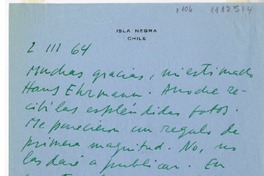 ISLA NEGRA
CHILE
2 III 64
Muchas gracias, mi estimado
Hans Ehrmann. Anoche re-
cibí las espléndidas fotos.
Me parecieron un regalo de
primera magnitud. No, no
las daré a publicar. En